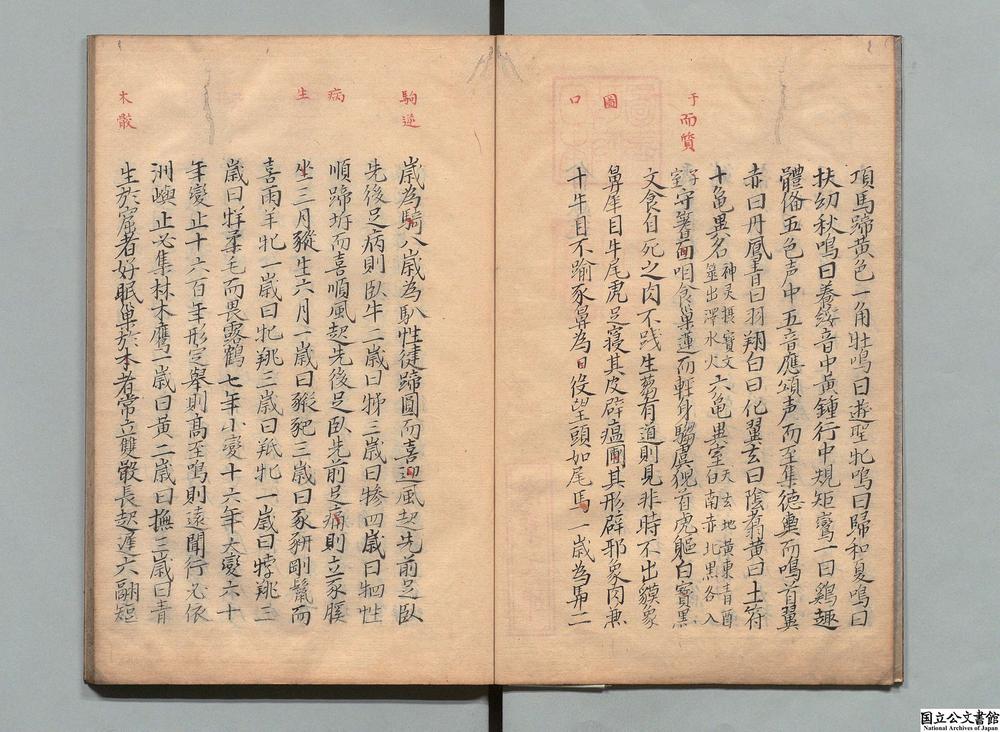 于而質
圖
口
項馬蹄黄色一角牡鳴曰遊聖牝鳴曰歸和夏鳴曰
扶幼秋鳴曰養綏音中黄鍾行中規矩鸞一曰鷄趣
體俻五色声中五音應頌声而至集徳奥而鳴首翼
赤曰丹鳳青曰羽翔白曰化翼玄曰陰翥黄曰土符
十亀異名神灵摂寳文筮出澤水火六亀異室天玄地黄東青酉白南赤北黒各入
室守箸而呬食巢蓮而軽身騶虞猊首虎軀白寳黒
文食自死之肉不践生蒭有道則見非時不出貘象
鼻犀目牛尾虎足寝其皮辟瘟圖其形辟邪象肉兼
十牛目不踰豕鼻為口役望頭如尾馬一歳為馵二
駒逆
病
生
木散
歳為騎八歳為馱性徒蹄圓而喜迎風起先前足臥
先後足病則臥牛二歳曰㸬三歳曰犙四歳曰牭性
順蹄坼而喜順風起先後足臥先前足病則立豕豯
生三月豵生六月一歳曰豵豝三歳曰豕豜剛鬣而
喜雨羊牝一歳曰牝挑三歳曰羝牝一歳曰牸挑三
歳曰牂柔毛而畏露鶴七年小變十六年大變六十
年變止十六百年形定舉則髙至鳴則遠聞行必依
洲嶼止必集林木鷹一歳曰黄二歳曰撫三歳曰青
生於窟者好眠巢於木者常立雙骹長起遅六翮短
国立公文書館
National Archives of Japan